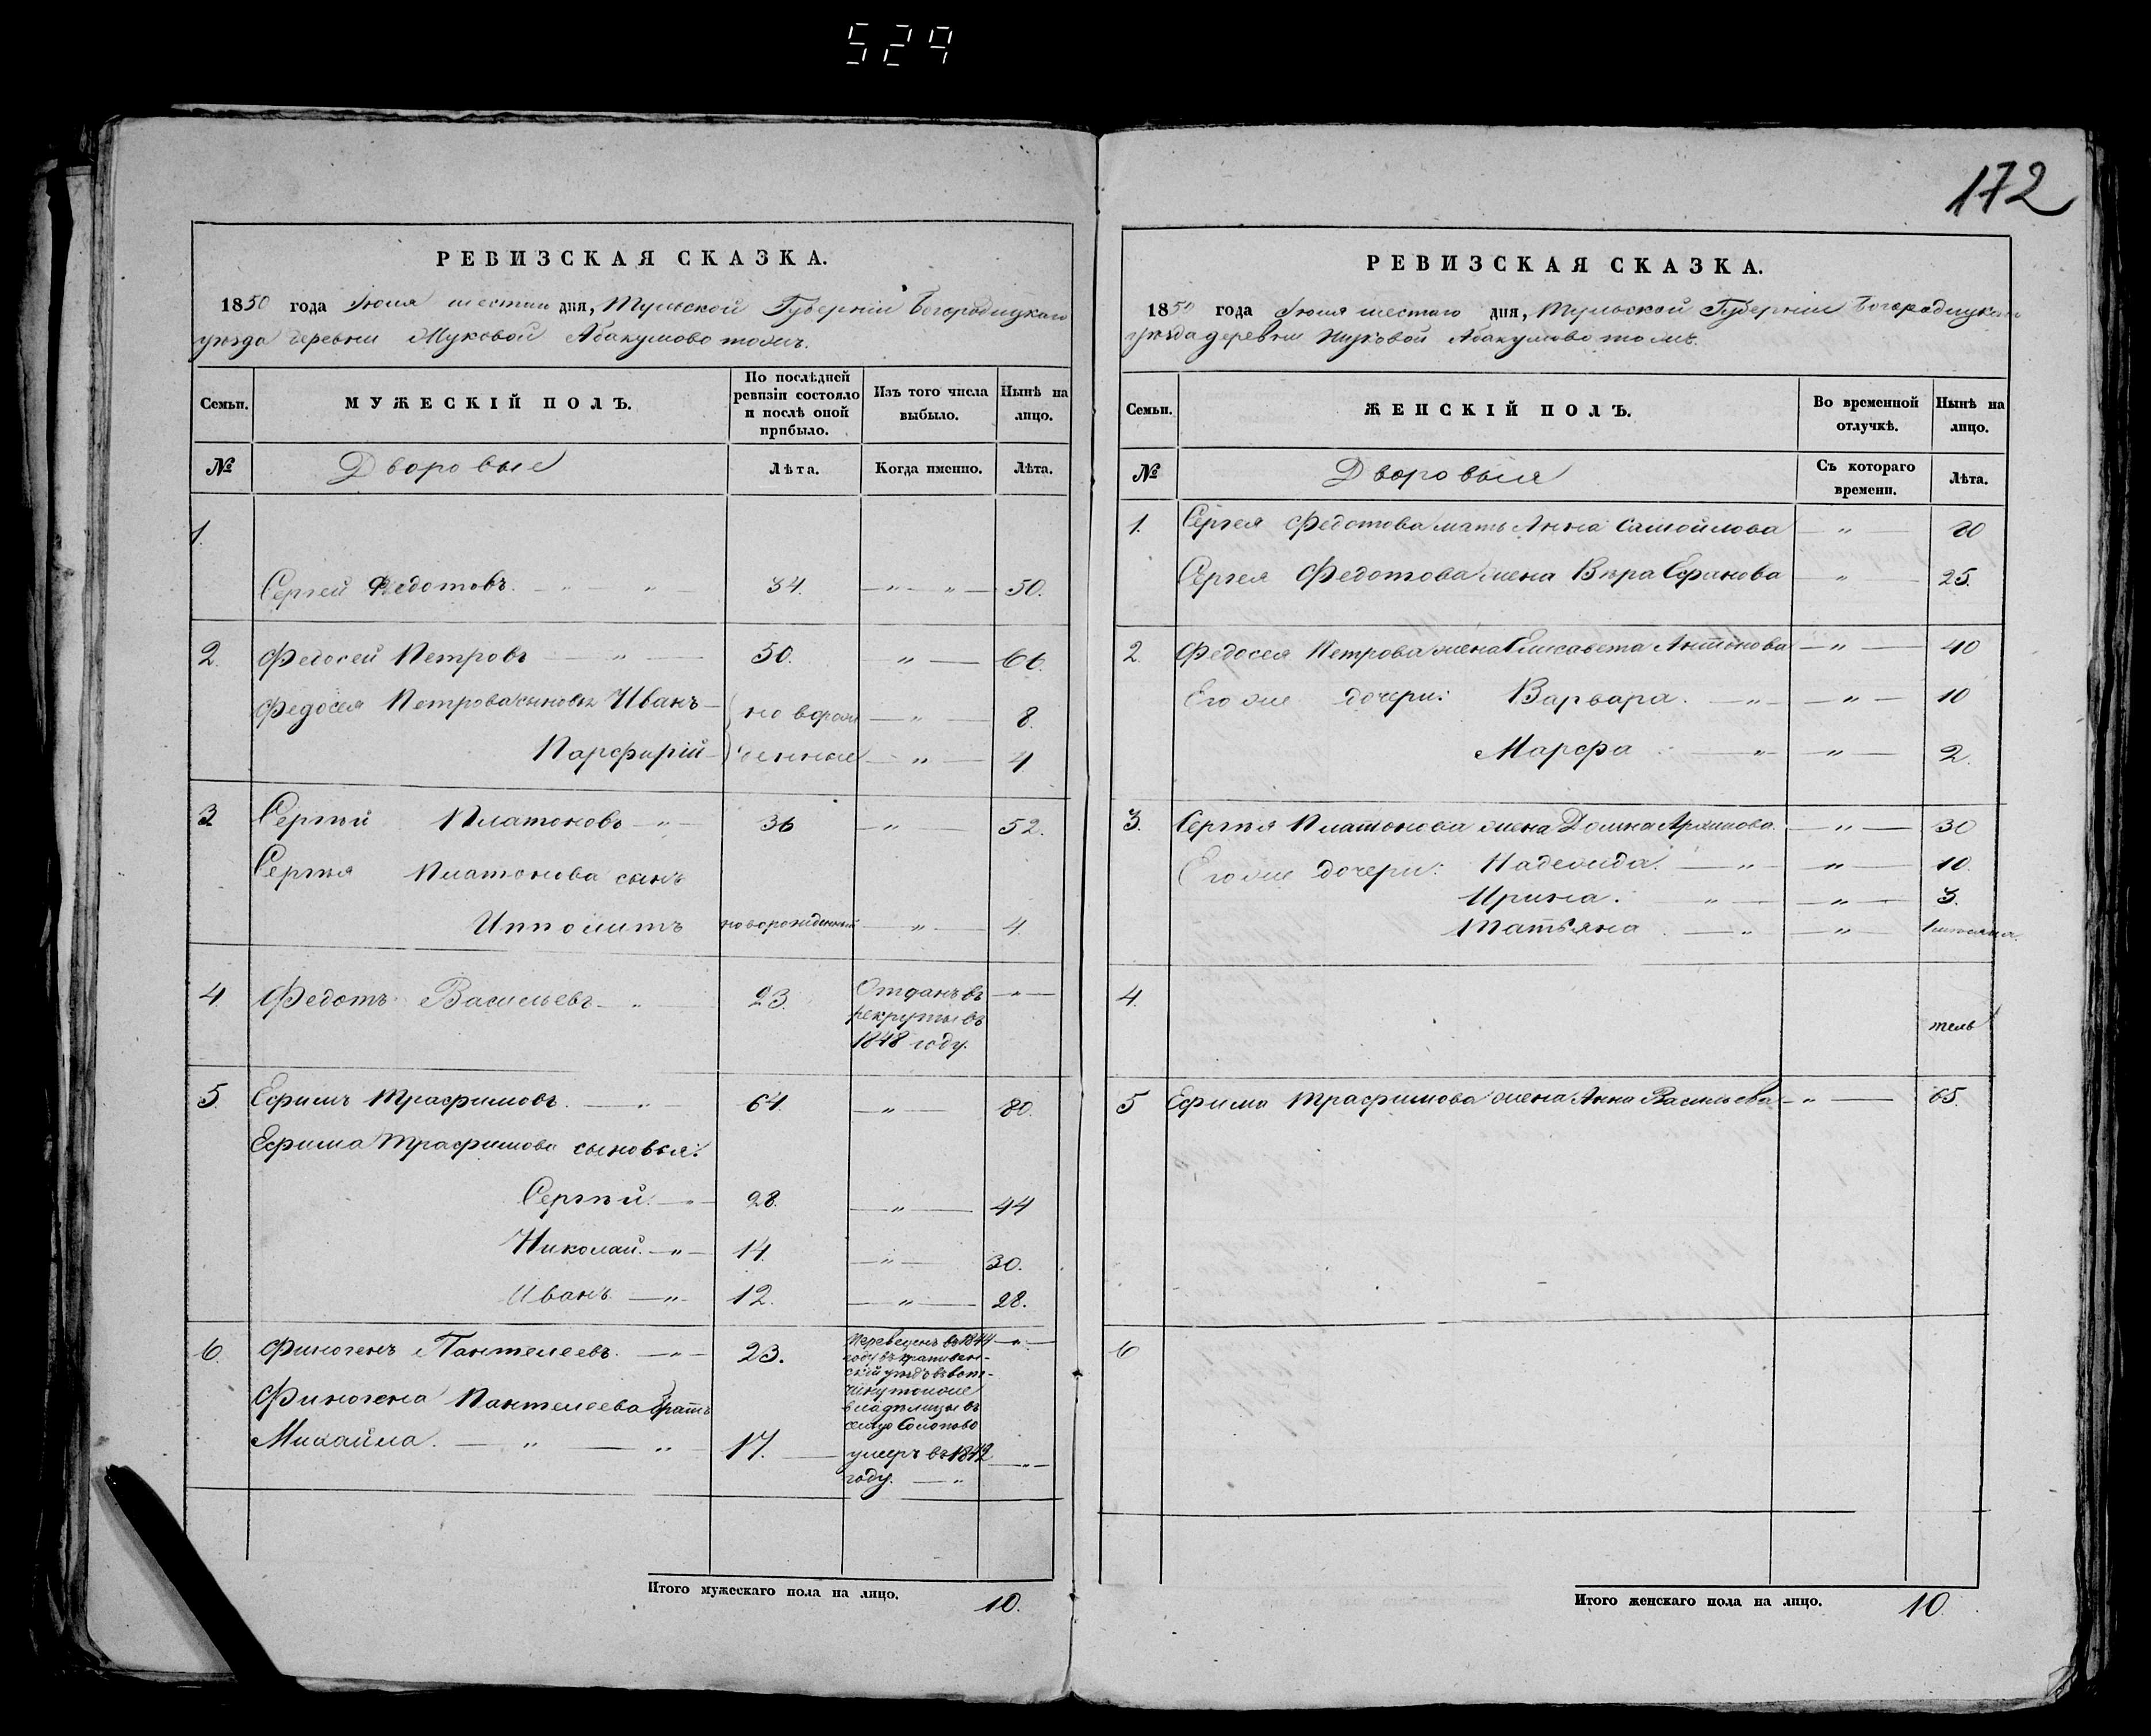 529
172
РЕВИЗСКАЯ СКАЗКА.
1850 года Июня шестаго дня, Тульской Губерніи Богородицкаго
уѣзда деревни Жуковой Абакумово тожъ.
Семьи. МУЖЕСКІЙ ПОЛЪ. По послѣдней ревизіи состояло и послѣ оной прибыло. Изъ того числа выбыло. Нынѣ на лицо.
№ Дворовые Лѣта. Когда именно. Лѣта.
1.
Сергей Федотовъ. — " — 34. — " — " — 50.
2. Федосей Петровъ — " — 50. " — 66.
Федосея Петрова сыновья Иванъ — новорож — " — 8.
Парфирій — денные — " — 4
3 Сергѣй Платоновъ — " — 36 — " — 52.
Сергѣя Платонова сынъ
Ипполитъ новорожденный — " — 4.
4. Федотъ Васильевъ — " — 23. Отданъ въ — " —
рекруты въ
1848 году.
5. Ефимъ Трафимовъ. — " 64. — " — 80.
Ефима Трафимова сыновья:
Сергѣй. — " — 28. — " — 44
Николай. — " — 14. — " — 30.
Иванъ. — " — 12. — " — 28.
6. Финогенъ Пантелеевъ. — " — 23. Переведенъ въ 1844 — " —
году въ крапивен-
скій уѣздъ въ вот-
чину тойже
владѣлицы въ
сельцо
Финогена Пантелеева братъ
Михайла. — " — " 17. — умеръ въ 1842 — " —
году. — "
Итого мужескаго пола на лицо. 10.
РЕВИЗСКАЯ СКАЗКА.
1850 года Июня шестаго дня, Тульской Губерніи Богородицкаго
уѣзда деревни Жуковой Абакумово тожъ.
Семьи. ЖЕНСКІЙ ПОЛЪ. Во временной отлучкѣ. Нынѣ на лицо.
№ Дворовыя Съ котораго времени. Лѣта.
1. Сергея Федотова мать Анна Самойлова — " —
Сергея Федотова жена Вѣра Ефимова — " — 25.
2. Федосея Петрова жена Елисавета Антонова — " — 40
Его же дочери: Варвара. — " — " — 10
Марфа — " — " — 2.
3. Сергѣя Платонова жена Домна Архипова. — " — 30
Его же дочери: Надежда. — " — " — 10.
Ирина. " — " — 3.
Татьяна. — " — " —
4.
5 Ефима Трафимова жена Анна Васильева — " — 65.
6
Итого женскаго пола на лицо. 10.